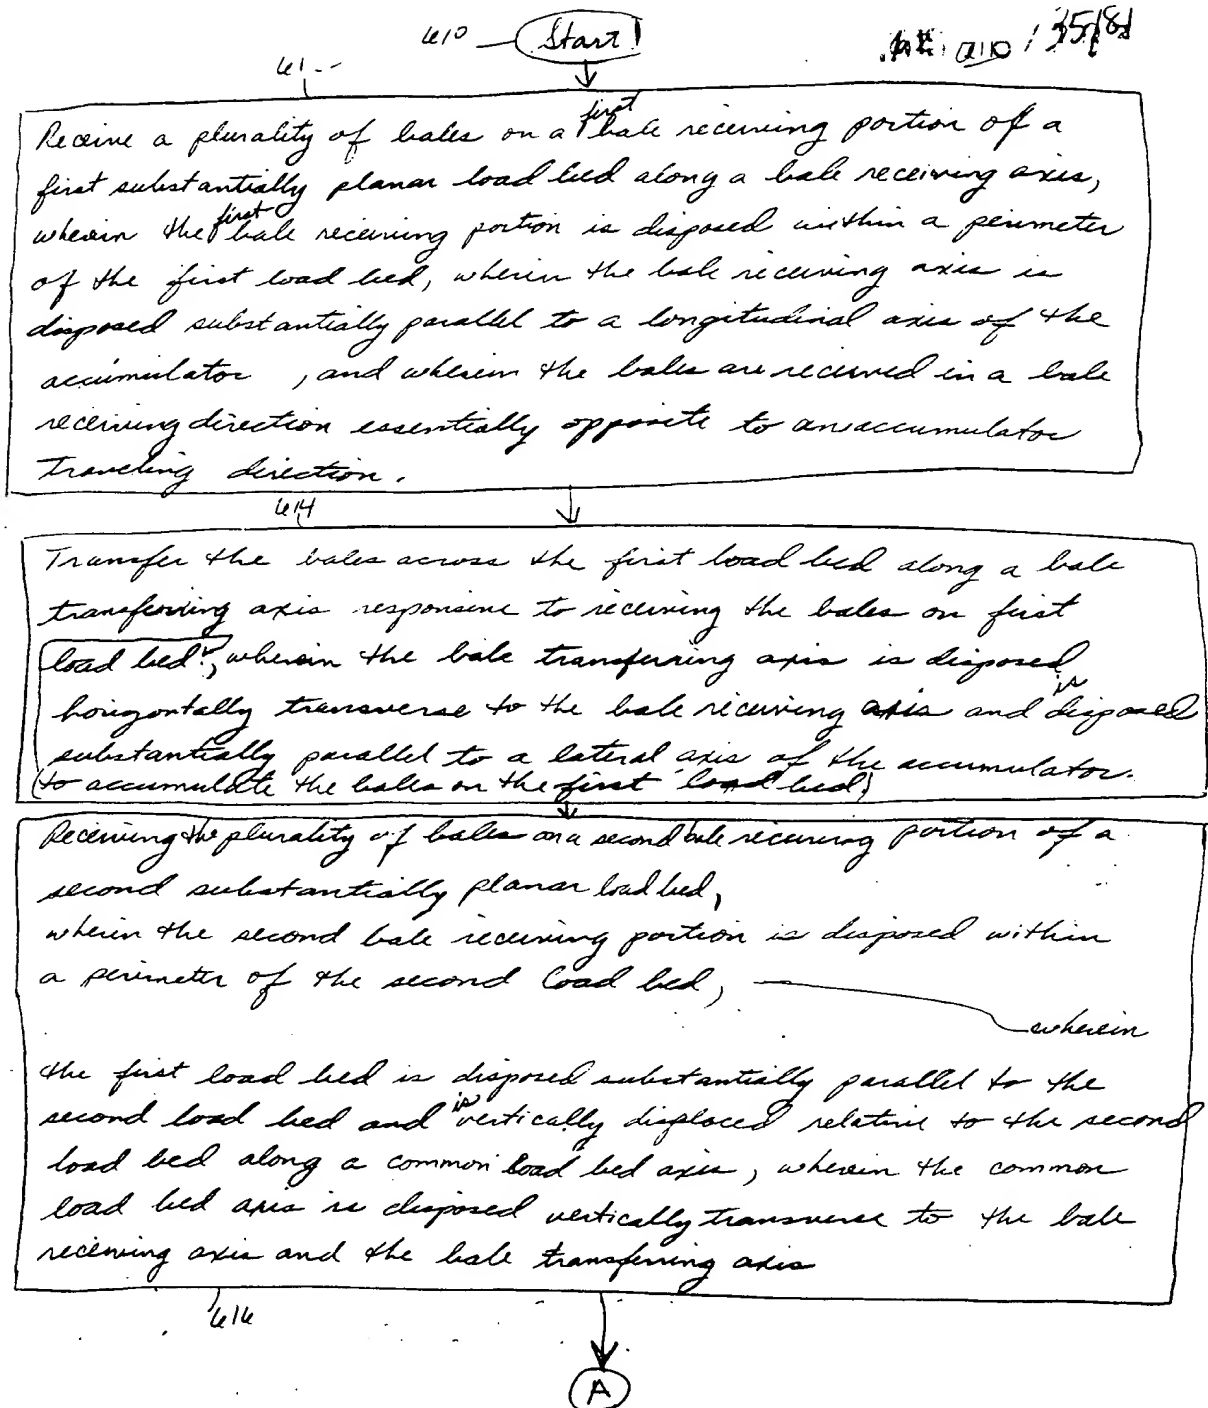 610 Start
35/81
Receive a plurality of bales on a first bale receiving portion of a
first substantially planar load bed along a bale receiving axis,
wherein the first bale receiving portion is disposed within a perimeter
of the first load bed, wherein the bale receiving axis is
disposed substantially parallel to a longitudinal axis of the
accumulator, and wherein the bales are received in a bale
receiving direction essentially opposite to an accumulator
traveling direction.
614
Transfer the bales across the first load bed along a bale
transferring axis responsive to receiving the bales on first
load bed, wherein the bale transferring axis is disposed
horizontally transverse to the bale receiving axis and is disposed
substantially parallel to a lateral axis of the accumulator.
(to accumulate the bales on the first load bed)
Receiving the plurality of bales on a second bale receiving portion of a
second substantially planar load bed,
wherein the second bale receiving portion is disposed within
a perimeter of the second load bed,
wherein
the first load bed is disposed substantially parallel to the
second load bed and is vertically displaced relative to the second
load bed along a common load bed axis, wherein the common
load bed axis is disposed vertically transverse to the bale
receiving axis and the bale transferring axis
616
A